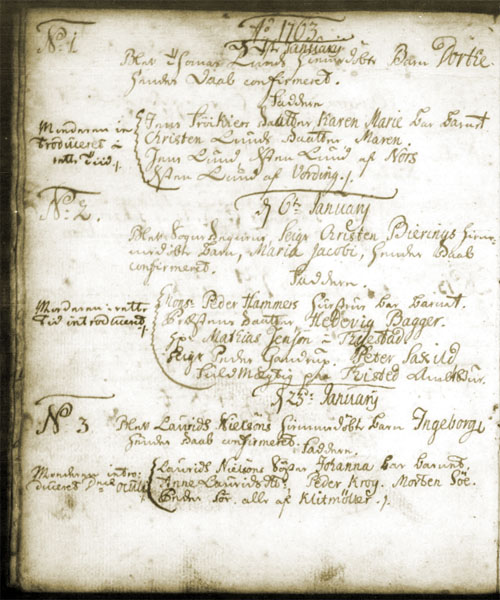 Ao 1763.
No: 1
d 1st January
Blev Thomas Lunds hiemedøbte Barn Dorthe
hendes Daab confirmeret.
Faddere
Moderen in
troduceret i
rette Tiid.
Jens Datter Karen Marie bar barnet
Christen Lunds Daatter Maren
Jens Lund, Lund af Nors
Lund af Vording.
No: 2.
d 6te January
Blev Seigr Christen Bierings hiem
medøbte barn, Maria Jacobi, hendes Daab
confirmeret.
Faddere.
Moderen i rette
Tid introduceret
Mons: Peder Hammers bar barnet.
Præstens Daatter Hedevig Bagger.
Hr Mathias Jensøn i
Seigr Peter Saxild
Fuldmægtig paa Tisted
d 25de January
No 3
Blev Laurids Nielsøns hiemmedøbte barn Ingeborg
hendes Daab confirmeret. Faddere.
Moderen intro
duceret
Laurids Nielsøns Søster Johanna bar barnet
Anne Peder Krog. Morten Söe.
alle af Klitmøller.